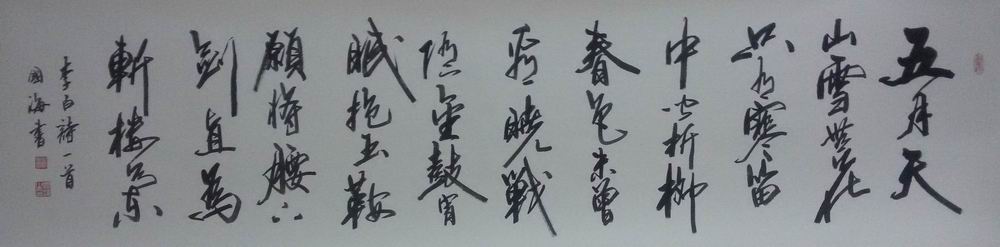 五月天
山雪無花
只有寒笛
中聞折柳
春色未曾
看曉戰
隨金鼓宵
眠抱玉鞍
願將腰下
劍直為
斬樓蘭
李白詩一首
國海書